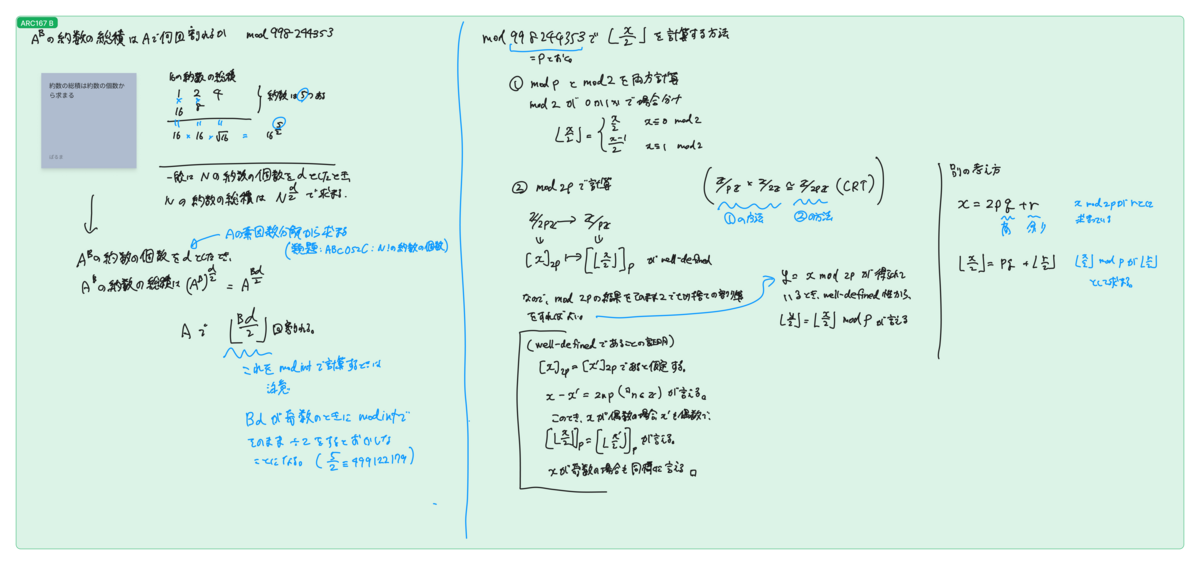 ARC167 B
A^Bの約数の総積はAで何回割れるか mod 998244353
約数の総積は約数の個数から求まる
16の約数の総積
1 2 4
× ×
16 8
約数は5つある
16 × 16 × √16 = 16^{5/2}
一般に Nの約数の個数をdとしたとき、
Nの約数の総積は N^{d/2} で求まる。
Aの素因数分解から求まる
(類題: ABC052C: N!の約数の個数)
A^Bの約数の個数をdとしたとき、
A^Bの約数の総積は (A^B)^{d/2} = A^{Bd/2}
Aで ⌊Bd/2⌋ 回割れる。
これを modintで計算するときは
注意
Bdが奇数のときに modintで
そのまま ÷2をするとおかしな
ことになる。 (5/2 ≡ 499122179)
mod 998244353で ⌊x/2⌋ を計算する方法
=pとおく
① mod p と mod 2 を両方計算
mod 2 が 0か1かで場合分け
⌊x/2⌋ = { x/2 x≡0 mod 2
(x-1)/2 x≡1 mod 2
② mod 2p で計算
(Z/pZ × Z/2Z ≅ Z/2pZ (CRT))
①の方法 ②の方法
Z/2pZ → Z/pZ
[x]_{2p} ↦ [⌊x/2⌋]_p が well-defined
なので、mod 2pの結果をそのまま2で切り捨ての割り算
をすればよい。
y = x mod 2p が得られて
いるとき、well-defined性から、
⌊y/2⌋ = ⌊x/2⌋ mod p が言える
(well-definedであることの証明)
[x]_{2p} = [x']_{2p} であると仮定する。
x - x' = 2np (∃n∈Z) が言える。
このとき、xが偶数の場合x'も偶数で、
[⌊x/2⌋]_p = [⌊x'/2⌋]_p が言える。
xが奇数の場合も同様に言える。□
別の考え方
x = 2pq + r
商 余り
x mod 2pがrとして
求まっている
⌊x/2⌋ = pq + ⌊r/2⌋
⌊x/2⌋ mod pが⌊r/2⌋
として求まる